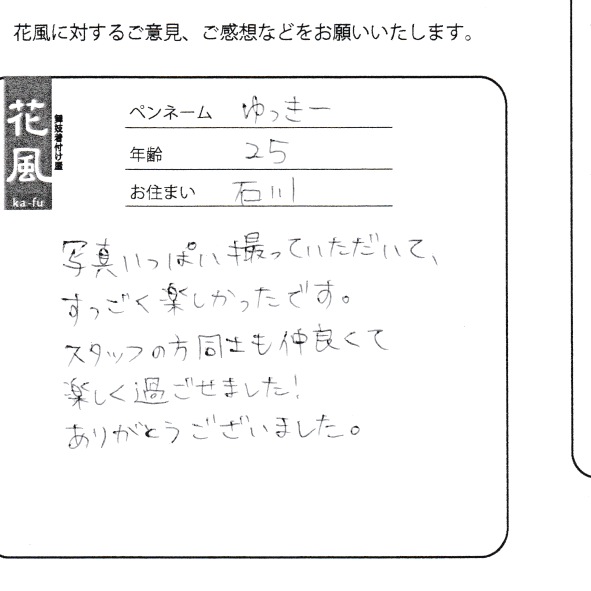 花風に対するご意見、ご感想などをお願いいたします。
花風
舞妓着付け屋
ka-fu
ペンネーム ゆっきー
年齢 25
お住まい 石川
写真いっぱい撮っていただいて、
すっごく楽しかったです。
スタッフの方同士も仲良くて
楽しく過ごせました!
ありがとうございました。